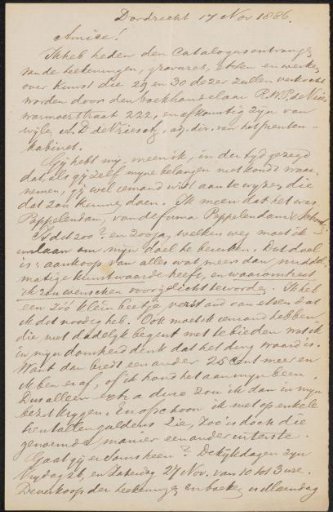 Dordrecht 17 Nov 1886.
Amice!
Ik heb heden den Catalogus ontvangen
van de teekeningen, gravures, etsen en werken
over kunst die 29 en 30 dezer zullen verkocht
worden door den boekhandelaar
Warmoesstraat 222, en afkomstig zijn van
wijle A. D. de Vries Az, adj. dir. van het prenten
kabinet.
Gij hebt mij, meen ik, in der tijd gezegd
dat als gij zelf mijne belangen niet kondt waar-
nemen, gij wel iemand wist aan te wijzen die
dat zou kunnen doen. Ik meen dat het was
Pappelendam, van de firma Pappelendam &
Is dit zoo? en zoo ja, welken weg moet ik
inslaan om mijn doel te bereiken. Dat doel
is: aankoop van alles wat meer dan middel
matige kunstwaarde heeft, en waaromtrent
ik zou wenschen voorgelicht te worden. Ik heb
een zóó klein beetje verstand van etsen dat
ik dit noodig heb. Ook moet ik iemand hebben
die niet dadelijk begint met te bieden wat ik
in mijn domheid denk dat het ding waard is.
Want dan biedt een ander 25 cent meer en
ik ben er af, of ik houd het aan mijn been
Dus alleen à deze zou ik dan in mijn
bezit krijgen. En ofschoon ik niet op enkele
tientallen guldens zie, zoo is doch die
genoemde manier een andere
Gaat gij er soms heen? De kijkdagen zijn
Vrijdag 26, en Zaterdag 27 Nov. van 10 tot 3 ure.
De verkoop der teekeningen en boeken is Maandag